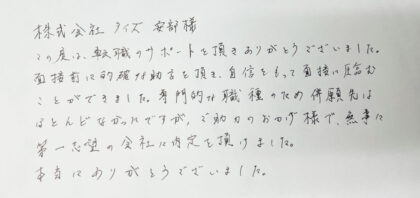 株式会社ライズ 安部様
この度は、転職のサポートを頂きありがとうございました。
面接前に的確な助言を頂き、自信をもって面接に臨む
ことができました。専門的な職種のため併願先は
ほとんどなかったですが、ご助力のおかげ様で、無事に
第一志望の会社に内定を頂けました。
本当にありがとうございました。